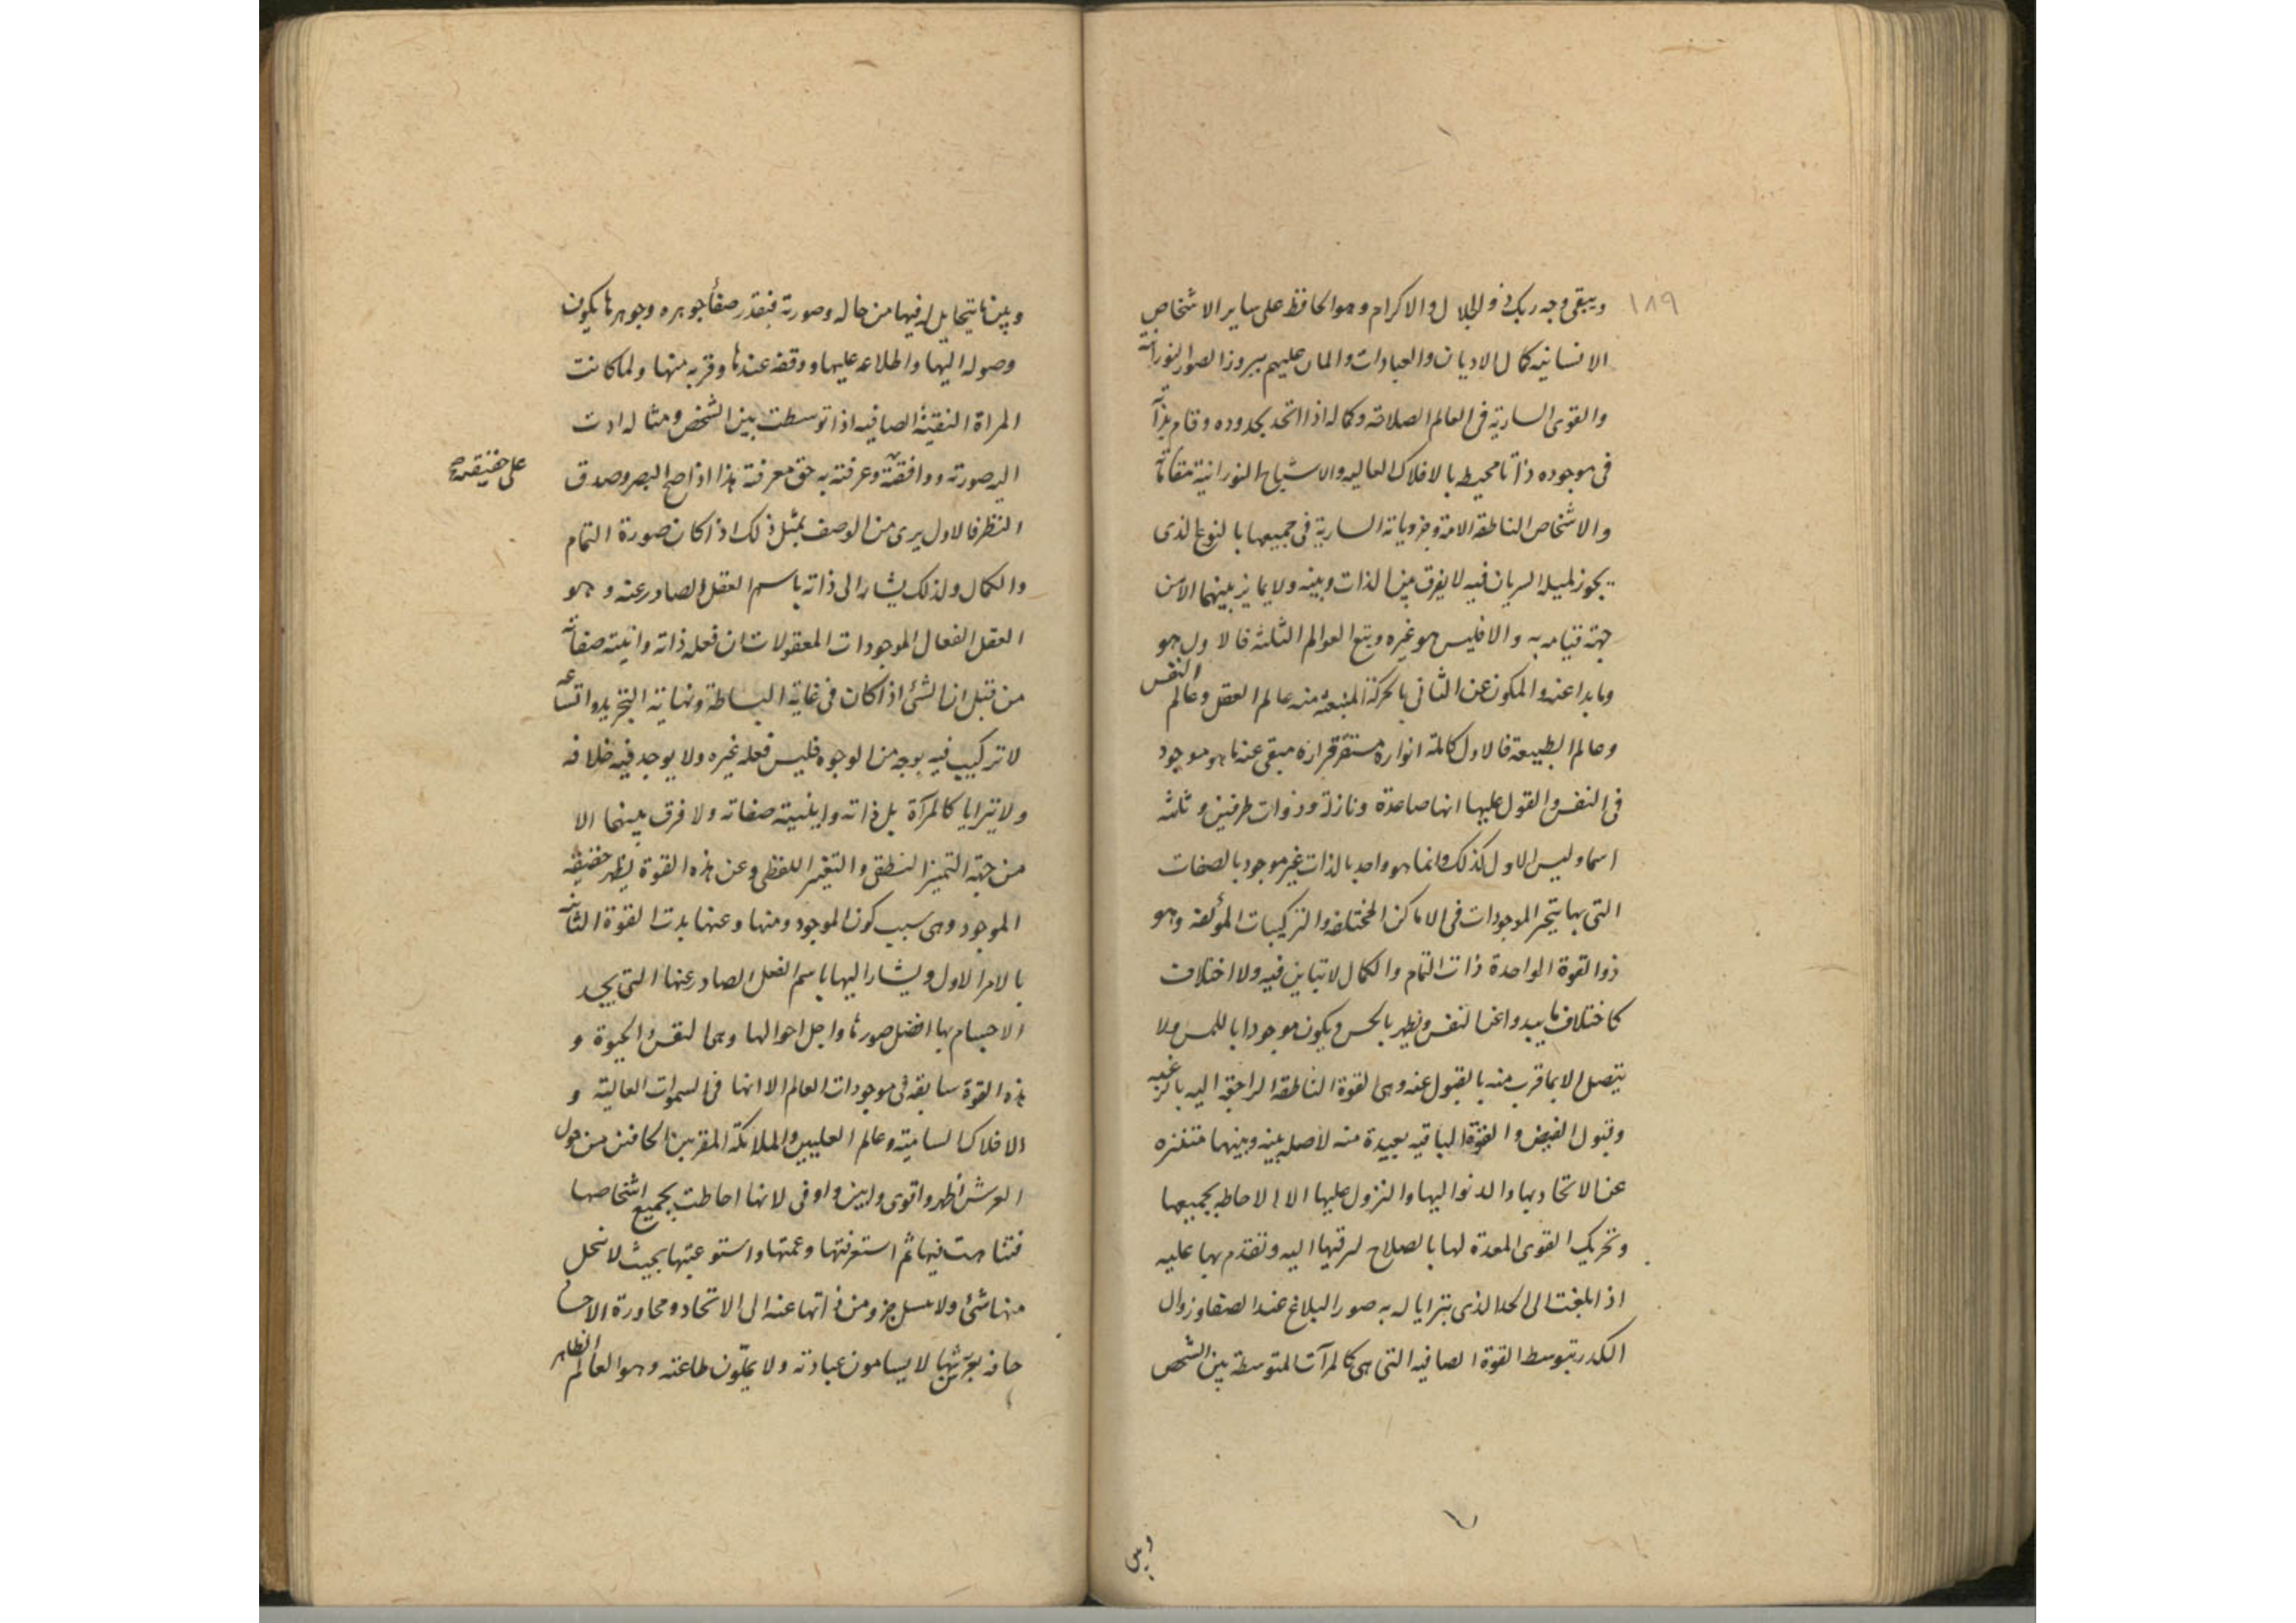 ١٨٩
ويبقى وجه ربك ذو الجلال والاكرام وهو الحافظ على ساير الاشخاص
الانسانيه كمال الاديان والعبادات والمان عليهم ببروز الصور النورانية
والقوى السارية فى العالم الصلاحه وكماله اذا اتحد بحدوده وقام بذاته
فى موجوده ذاتا محيط بالافلاك العاليه والاشباح النورانية
والاشخاص الناطقة وجزوياته السارية فى جميعها بالنوع الذى
يجوز السريان فيه لا يفرق بين الذات وبينه ولا يمايز بينهما الا من
جهة قيامه به والا فليس هو غيره العوالم الثلثه فالاول هو
وما بدا عنه والمكون عن الثانى بالحركة المنبعثه منه عالم العقل وعالم النفس
وعالم الطبيعة فالاول كاملة انواره مستقر قراره مبقى عنه ما هو موجود
فى النفس والقول عليها انها صاعدة ونازلة وذوات طرفين وثلثه
اسما وليس الاول كذلك وانما هو واحد بالذات غير موجود بالصفات
التى بها الموجودات فى الاماكن المختلفه والتركيبات المؤلفه وهو
ذو القوة الواحدة ذات التمام والكمال لا تباين فيه ولا اختلاف
كاختلاف ما يبدوا عن النفس ويظهر بالحس ويكون موجودا باللمس ولا
يتصل الا بما قرب منه بالقبول عنه وهى القوة الناطقه الراجعة اليه بالرغبه
وقبول الفيض والقوة الباقيه بعيدة منه لا بينه وبينها متنزه
عن الاتحاد بها والدنو اليها والنزول عليها الا الاحاطه بجميعها
وتحريك القوى المعدة لها بالصلاح لرقيها اليه وتقدم بها عليه
اذا بلغت الى الحد الذى يترايا له به صور البلاغ عند الصفا وزوال
الكدر بتوسط القوة الصافيه التى هى كالمرآت المتوسطة بين الشخص
وبين
وبين ما يتخايل له فيها من حاله وصورته فبقدر صفأ جوهره وجوهرها يكون
وصوله اليها واطلاعه عليها ووقفه عندها وقربه منها ولما كانت
المراة النقية الصافيه اذا توسطت بين الشخص ومثاله ادت
اليه صورته ووافقته وعرفته به حق معرفة هذا اذا صح البصر وصدق
على حقيقة
النظر فالاول يرى من الوصف بمثل ذلك اذا كان صورة التمام
والكمال ولذلك يشار الى ذاته باسم العقل الصادر عنه وهو
العقل الفعال الموجودات المعقولات ان فعله ذاته وانيته صفاته
من قبل ان الشئ اذا كان فى غاية البساطة ونهاية التجريد واتساعه
لا تركيب فيه بوجه من الوجوه فليس فعله غيره ولا يوجد فيه خلافه
ولا يترايا كالمرآة بل ذاته واينيته صفاته ولا فرق بينهما الا
من جهة التميز النطقى والتغير اللفظى وعن هذه القوة يظهر حقيقه
الموجود وهى سبب كون الموجود ومنها وعنها بدت القوة الثانيه
بالامر الاول ويشار اليها باسم الفعل الصادر عنها التى يجد
الاجسام بها افضل صورها واجل احوالها وهى النفس والحيوة و
هذه القوة سابقه فى موجودات العالم الا انها فى السموات العالية و
الافلاك السامية وعالم العليين والملائكة المقربين الحافين من حول
العرش اظهر واقوى وابين واوفى لانها احاطت بجميع اشخاصها
فتناهت فيها ثم استغرقتها وعمتها واستوعبتها بحيث لا ينحل
منها شئ ولا جزو من ذاتها عنه الى الاتحاد ومجاورة
حافه بعرشها لا يسامون عبادته ولا يملّون طاعته وهو العالم الظاهر